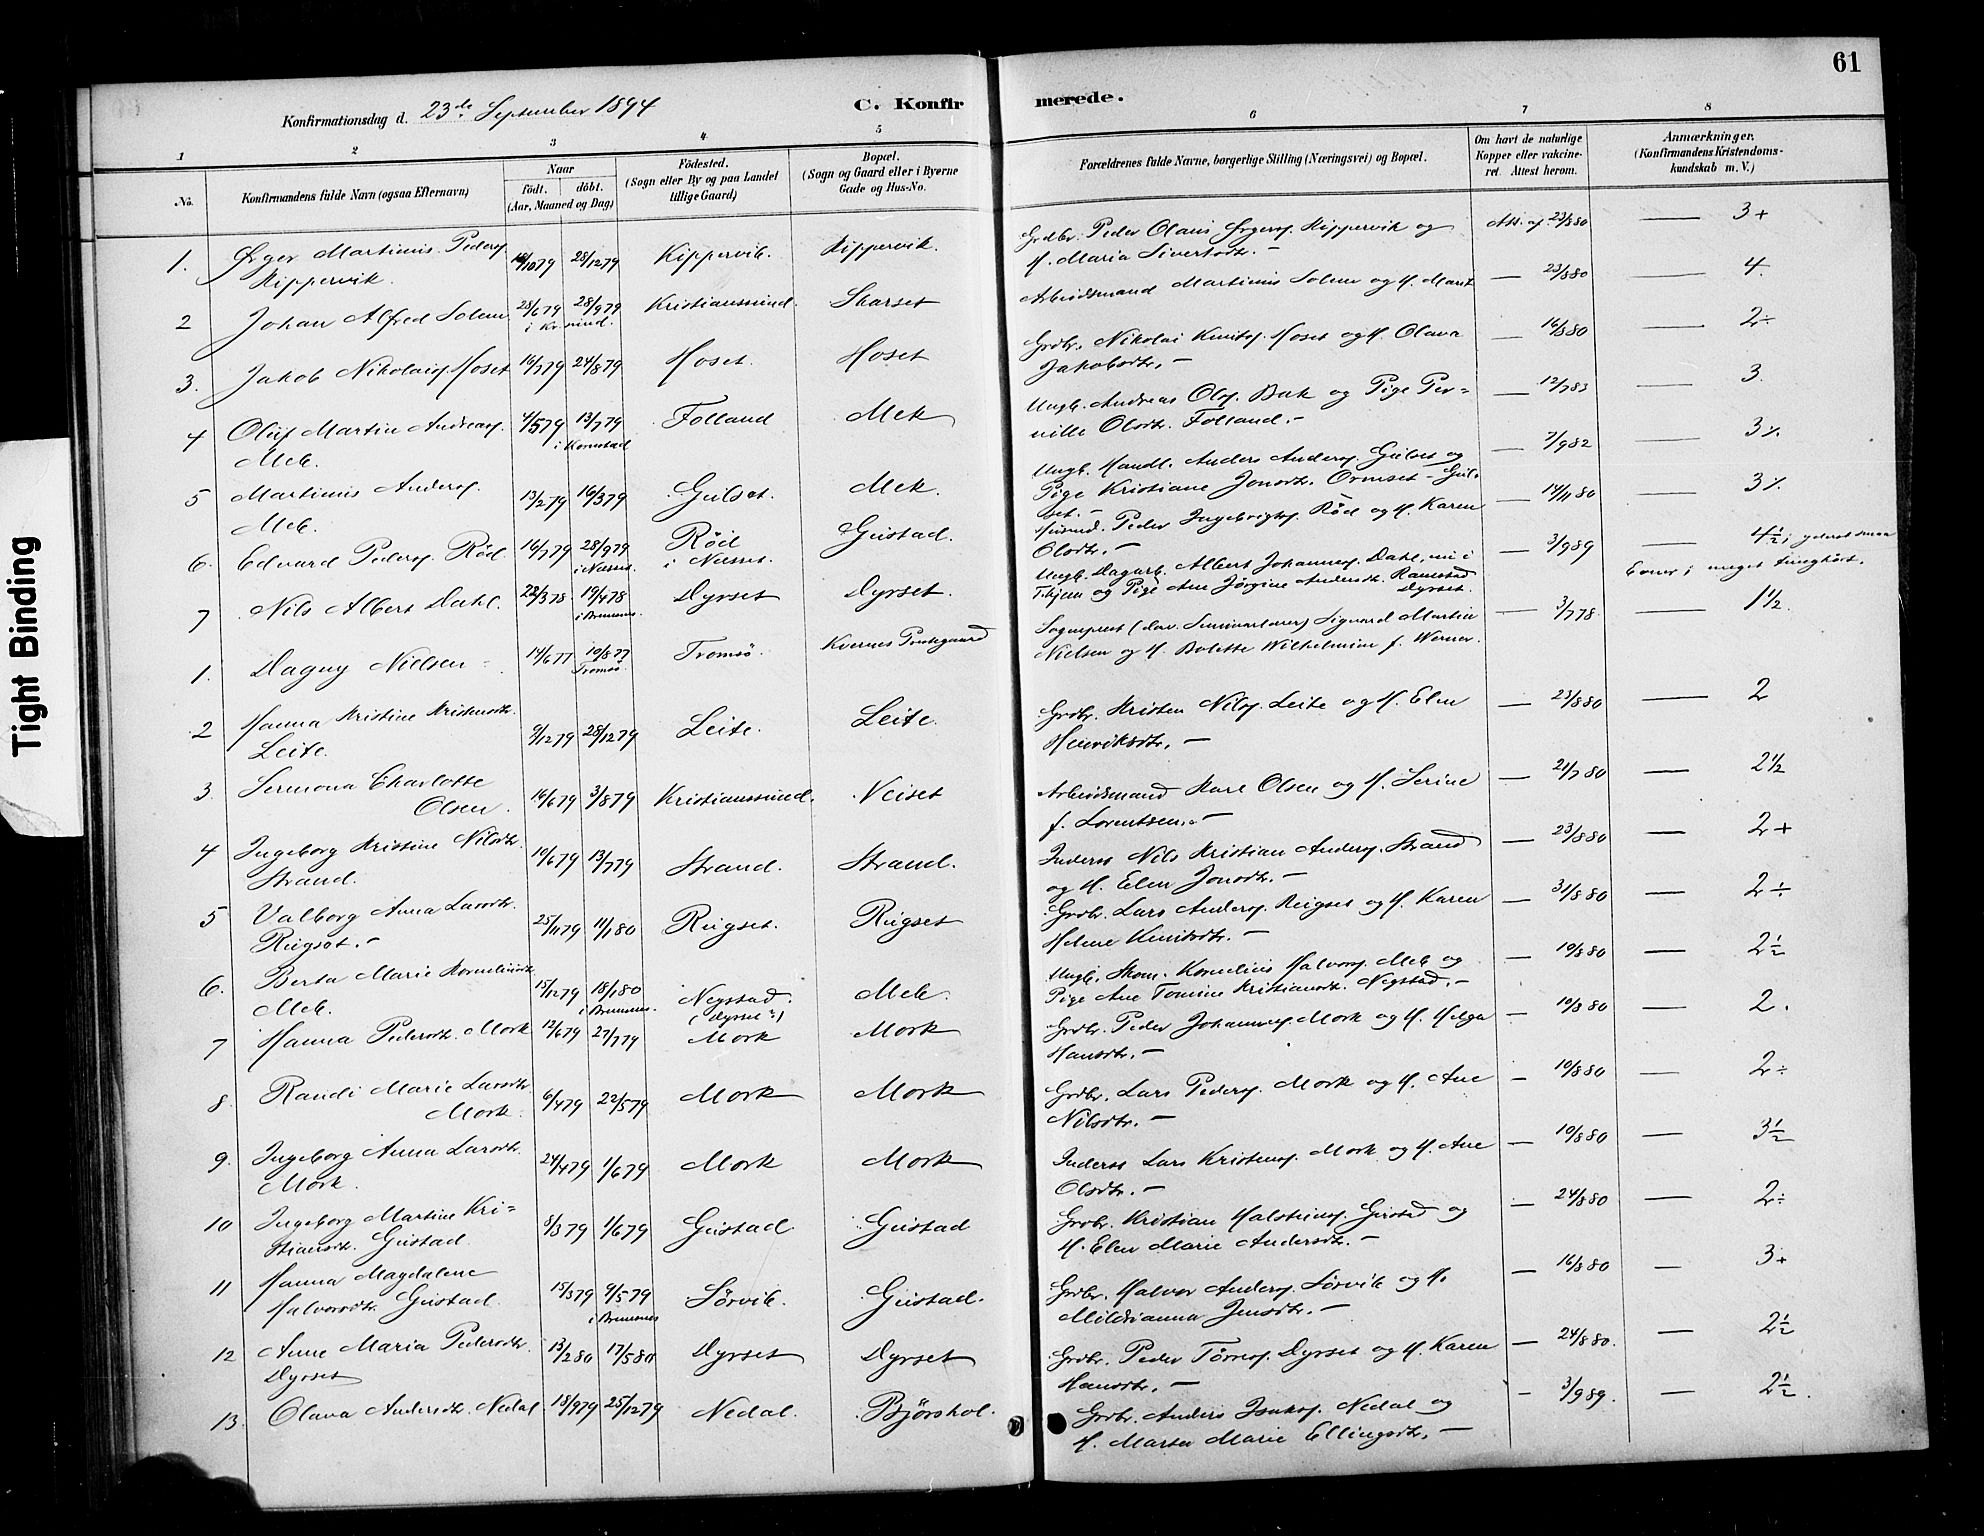 61
Konfirmationsdag d. 23de September 1894
C. Konfirmerede.
1 2 3 4 5 6 7 8
No.
Konfirmandens fulde Navn (ogsaa Efternavn)
Naar
født. døbt.
(Aar, Maaned og Dag)
Fødested.
(Sogn eller By og paa Landet
tillige Gaard)
Bopæl.
(Sogn og Gaard eller i Byerne
Gade og Hus-No.
Forældrenes fulde Navne, borgerlige Stilling (Næringsvei) og Bopæl.
Om havt de naturlige
Kopper eller vakcine-
ret. Attest herom.
Anmærkninger.
(Konfirmandens Kristendoms-
kundskab m. V.)
1. Martinus Peders. 28/12 79 Kippervik. Kippervik. Grdbr. Peder Olaus Kippervik og Att. af 23/8 80 — 3+
Kippervik. M. Maria Sivertsdtr. —
2 Johan Alfred Solem 28/6 79 28/9 79 Kristianssund. Skarset Arbeidsmand Martinus Solem og M. Marit — 23/8 80 — 4.
3. Jakob Nikolais. Hoset 16/7 79 24/8 79 Hoset. Hoset Grdbr. Nikolai Knuts. Hoset og M. Olava — 16/8 80 — 2÷
Jakobsdtr. —
4 Oluf Martin Andreas. 4/5 79 13/7 79 Folland Mek Ungk. Andreas Ols. Bak og Pige Per- — 12/7 83 — 3.
Mek. i Kornstad nille Olsdtr. Folland. —
5 Martinus Anders. 13/2 79 16/3 79 Gulset. Mek. Ungk. Handl. Anders Anders. Gulset og — 7/9 82 — 3%
Mek. Pige Kristiane Jonsdtr. Ormset - Gul-
set. —
6. Edvard Peders. Rød 16/7 79 28/9 79 Rød Gustad. Husmd. Peder Ingebrigts. Rød og M. Karen — 14/11 80 — 3%
i Nesset. i Nesset. Olsdtr. —
7 Nils Albert Dahl. 22/3 78 19/4 78 Dyrset Dyrset. Ungk. Dagarb. Albert Johannes. Dahl, nu i — 3/9 89 — 4½ i
i Bremsnes Pige Ane Jørgine Andersdtr. Ramstad Evner i meget tunghørt.
Dyrset.
1. Dagny Nielsen - 14/6 77 10/8 77 Tromsø. Kvernes Prestegaard Sogneprest (dav. Seminarlærer) Sigvard Martin — 3/7 78. — 1½.
Tromsø. Nielsen og M. Bolette Wilhelmine f. Werner.
2 Hanna Kristine Kristensdtr. 9/12 79 28/12 79 Leite. Leite. Grdbr. Kristen Nils. Leite og M. Elen — 23/8 80 — 2
Leite. Henriksdtr. —
3. Sermona Charlotte 16/6 79 3/8 79 Kristianssund. Neiset Arbeidsmand Karl Olsen og M. Serine — 21/7 80 — 2½
Olsen. f. Lorentsen. —
4 Ingeborg Kristine Nilsdtr. 10/6 79 13/7 79 Strand. Strand. Inderst Nils Kristian Anders. Strand — 23/8 80 — 2+
Strand. og M. Elen Jonsdtr. —
5 Valborg Anna Larsdtr. 25/11 79 11/1 80 Rugset. Rugset Grdbr. Lars Anders. Rugset og M. Karen — 31/8 80 — 2÷
Rugset. — Helene Knutsdtr. —
6. Berta Marie Korneliusdtr. 15/12 79 18/1 80 Negstad. Mek. Ungk. Skom. Kornelius Halvors. Mek og — 10/8 80 — 2½
Mek. i Bremsnes. (Dyrset?) Pige Ane Tomine Kristiansdtr. Negstad. —
7 Hanna Pedersdtr. Mork 12/6 79 27/7 79 Mork Mork Grdbr. Peder Johannes. Mork og M. Helga — 10/8 80 — 2.
Hansdtr. —
8. Randi Marie Larsdtr. 6/4 79 22/5 79 Mork Mork Grdbr. Lars Peders. Mork og M. Ane — 10/8 80 — 2÷
Mork. Nilsdtr. —
9. Ingeborg Anna Larsdtr. 24/4 79 1/6 79 Mork Mork Inderst Lars Kristens. Mork og M. Ane — 10/8 80 — 3½
Mork. Olsdtr. —
10 Ingeborg Martine Kri- 8/3 79 1/6 79 Gustad Gustad Grdbr. Kristian Halsteins. Gustad og — 24/8 80 — 2÷
stiansdtr. Gustad. M. Elen Marie Andersdtr. —
11 Hanna Magdalene 15/3 79 9/5 79 Sørvik. Gustad. Grdbr. Halvor Anders. Sørvik og M. — 16/8 80 — 3+
Halvorsdtr. Gustad. i Bremsnes Mildrianna Jensdtr. —
12 Anne Maria Pedersdtr. 13/2 80 17/5 80 Dyrset Dyrset Grdbr. Peder Tørres. Dyrset og M. Karen — 24/8 80. — 2½
Dyrset Hansdtr. —
13. Olava Andersdtr. Nedal 18/9 79 25/12 79 Nedal. Bjørshol. Grdbr. Anders Isaks. Nedal og — 3/9 89. — 2½.
M. Marta Marie Ellingsdtr. —
Tight Binding